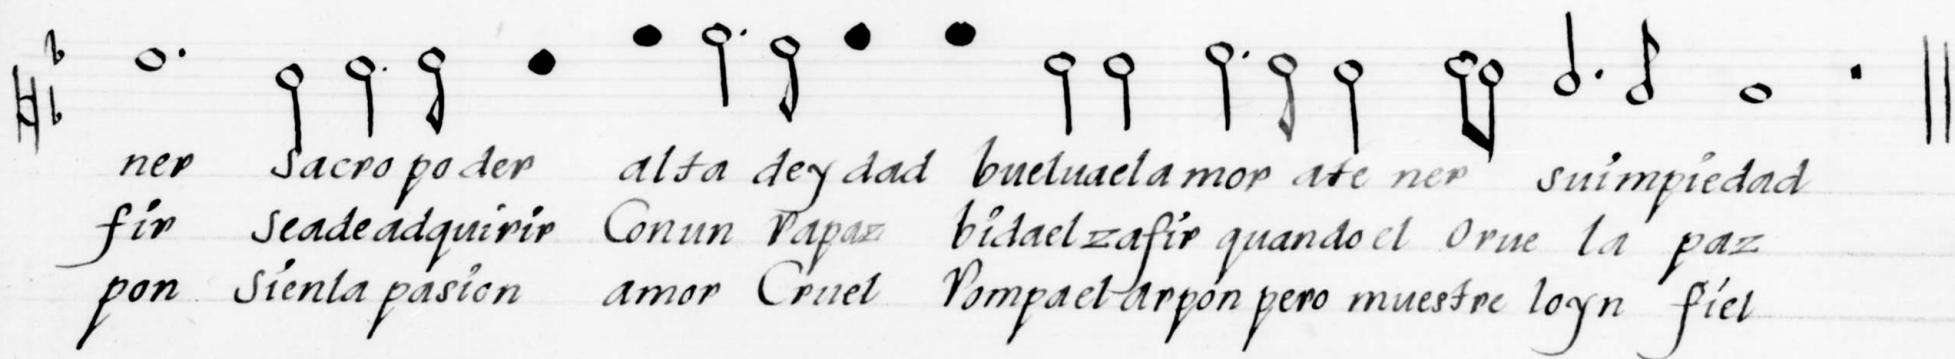 ner sacro poder alta deydad bueluael amor ate ner suimpiedad
fir seadeadquirir Conun Rapaz bidael zafir quando el Orue la paz
pon sienla pasion amor Cruel Rompael arpon pero muestre loyn fiel